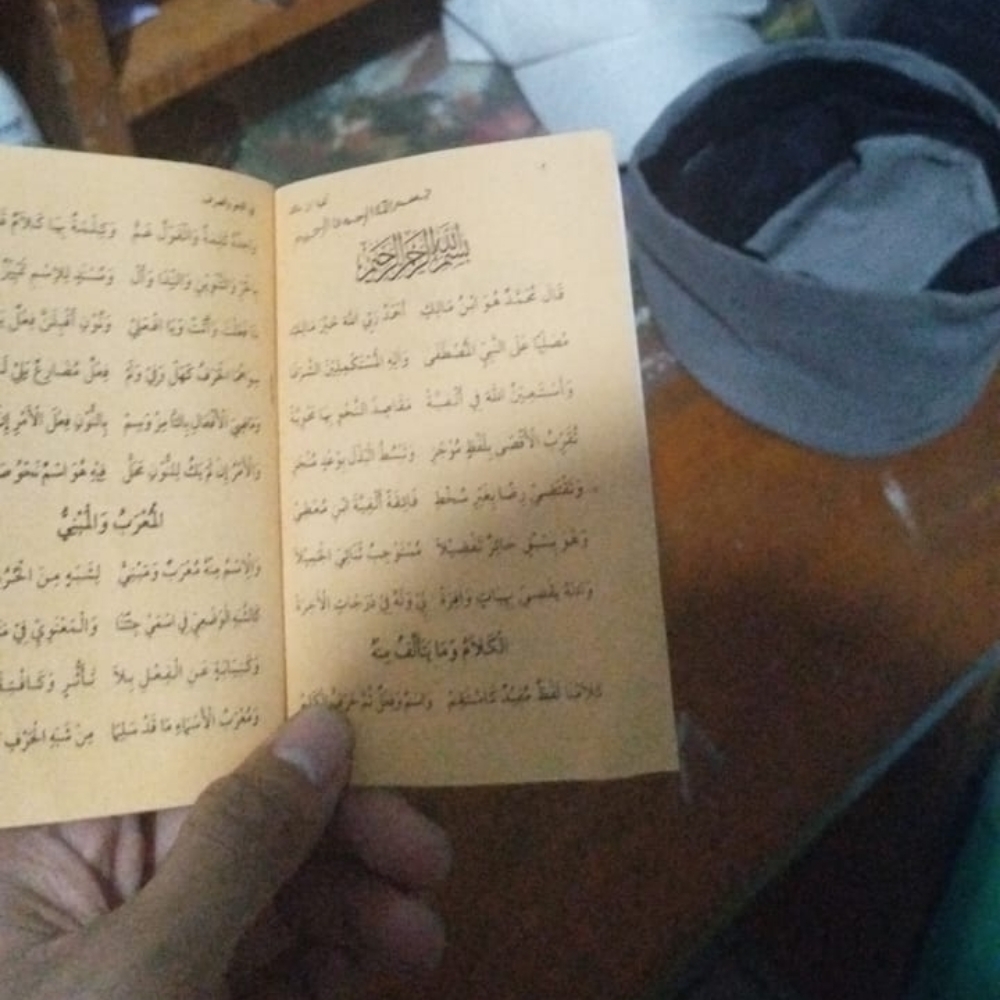 ألفية ابن مالك
بسم الله الرحمن الرحيم
بِسْمِ اللهِ الرَّحْمٰنِ الرَّحِيْمِ
قَالَ مُحَمَّدٌ هُوَ ابْنُ مَالِكِ أَحْمَدُ رَبِّي اللهَ خَيْرَ مَالِكِ
مُصَلِّيًا عَلَى النَّبِيِّ الْمُصْطَفَى وَآلِهِ الْمُسْتَكْمِلِيْنَ الشَّرَفَا
وَأَسْتَعِيْنُ اللهَ فِي أَلْفِيَّةْ مَقَاصِدُ النَّحْوِ بِهَا مَحْوِيَّةْ
تُقَرِّبُ الْأَقْصَى بِلَفْظٍ مُوْجَزِ وَتَبْسُطُ الْبَذْلَ بِوَعْدٍ مُنْجَزِ
وَتَقْتَضِيْ رِضًا بِغَيْرِ سُخْطِ فَائِقَةً أَلْفِيَّةَ ابْنِ مُعْطِيْ
وَهُوَ بِسَبْقٍ حَائِزٌ تَفْضِيْلَا مُسْتَوْجِبٌ ثَنَائِيَ الْجَمِيْلَا
وَاللهُ يَقْضِيْ بِهِبَاتٍ وَافِرَةْ لِيْ وَلَهُ فِيْ دَرَجَاتِ الْآخِرَةْ
الْكَلَامُ وَمَا يَتَأَلَّفُ مِنْهُ
كَلَامُنَا لَفْظٌ مُفِيْدٌ كَاسْتَقِمْ وَاسْمٌ وَفِعْلٌ ثُمَّ حَرْفٌ الْكَلِمْ
في النحو والصرف
وَاحِدُهُ كَلِمَةٌ وَالْقَوْلُ عَمّْ وَكِلْمَةٌ بِهَا كَلَامٌ
بِالْجَرِّ وَالتَّنْوِيْنِ وَالنِّدَا وَأَلْ وَمُسْنَدٍ لِلِاسْمِ تَمْيِيْزٌ
بِتَا فَعَلْتَ وَأَتَتْ وَيَا افْعَلِيْ وَنُوْنِ أَقْبِلَنَّ فِعْلٌ
سِوَاهُمَا الْحَرْفُ كَهَلْ وَفِيْ وَلَمْ فِعْلٌ مُضَارِعٌ يَلِيْ
وَمَاضِيَ الْأَفْعَالِ بِالتَّا مِزْ وَسِمْ بِالنُّوْنِ فِعْلَ الْأَمْرِ إِنْ
وَالْأَمْرُ إِنْ لَمْ يَكُ لِلنُّوْنِ مَحَلّْ فِيْهِ هُوَ اسْمٌ نَحْوُ
الْمُعْرَبُ وَالْمَبْنِيُّ
وَالِاسْمُ مِنْهُ مُعْرَبٌ وَمَبْنِيُّ لِشَبَهٍ مِنَ
كَالشَّبَهِ الْوَضْعِيِّ فِي اسْمَيْ جِئْتَنَا وَالْمَعْنَوِيِّ فِيْ
وَكَنِيَابَةٍ عَنِ الْفِعْلِ بِلَا تَأَثُّرٍ وَكَافْتِقَارٍ
وَمُعْرَبُ الْأَسْمَاءِ مَا قَدْ سَلِمَا مِنْ شَبَهِ الْحَرْفِ